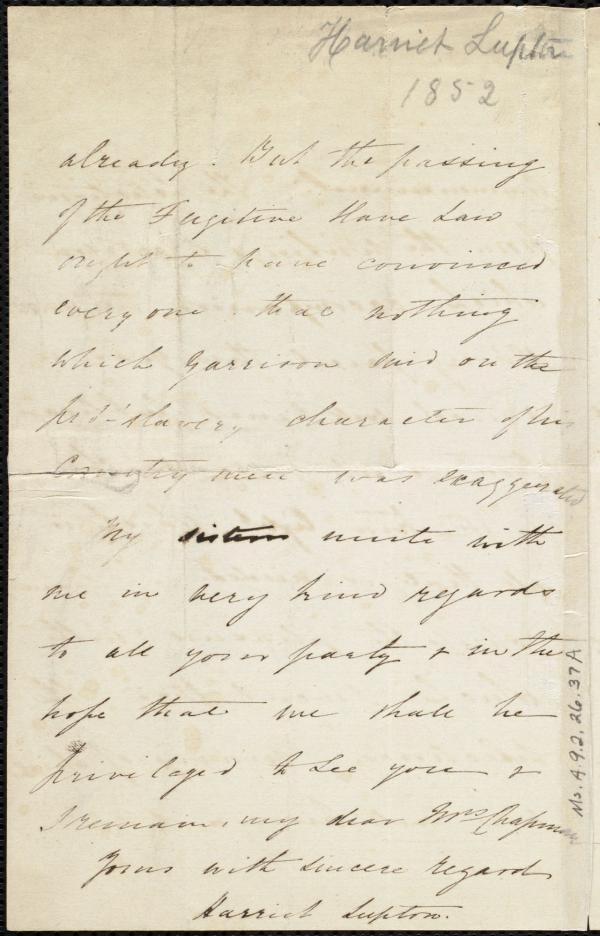 Harriet Lupton
1852
already. But the passing
of the Fugitive Slave Law
ought to have convinced
every one that nothing
which Garrison said on the
pro-slavery character of his
Country men was exaggerated
My sisters unite with
me in very kind regards
to all your party & in the
hope that we shall be
privileged to see you &
I remain, my dear Mrs Chapman
Yours with sincere regard
Harriet Lupton.
Ms. A.9.2.26.37A